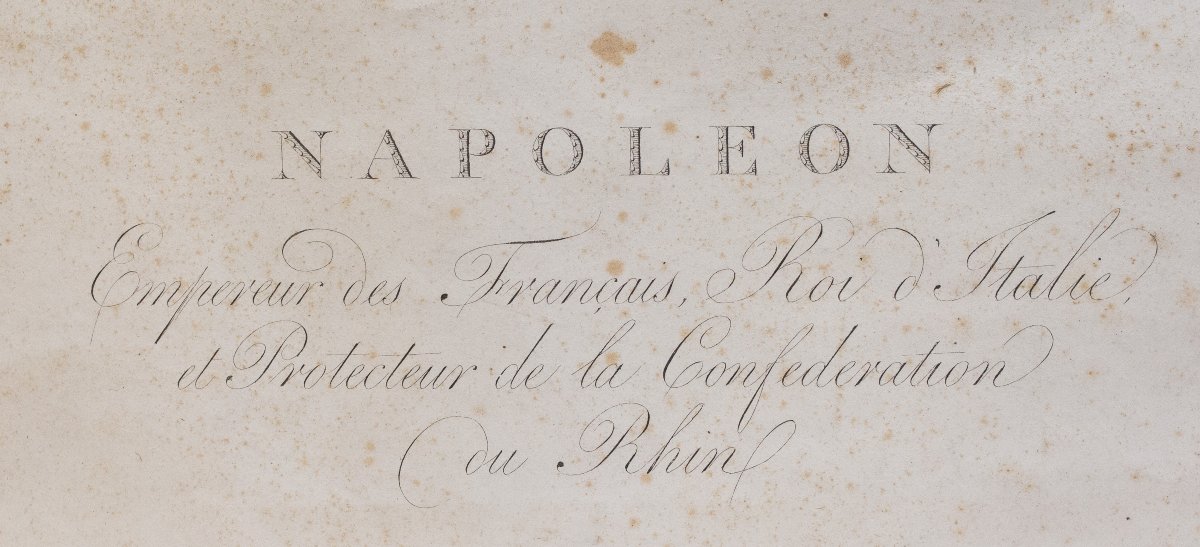 NAPOLEON
Empereur des Français, Roi d'Italie,
et Protecteur de la Confederation
du Rhin